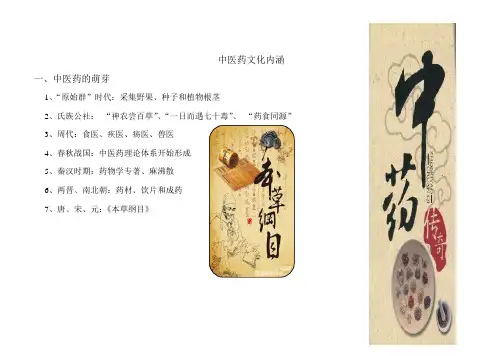 中医药文化内涵
一、中医药的萌芽
1、“原始群”时代：采集野果、种子和植物根茎
2、氏族公社： “神农尝百草”、“一日而遇七十毒”、 “药食同源”
3、周代：食医、疾医、疡医、兽医
4、春秋战国：中医药理论体系开始形成
5、秦汉时期：药物学专著、麻沸散
6、两晋、南北朝：药材、饮片和成药
7、唐、宋、元：《本草纲目》
本草纲目
中药
传奇